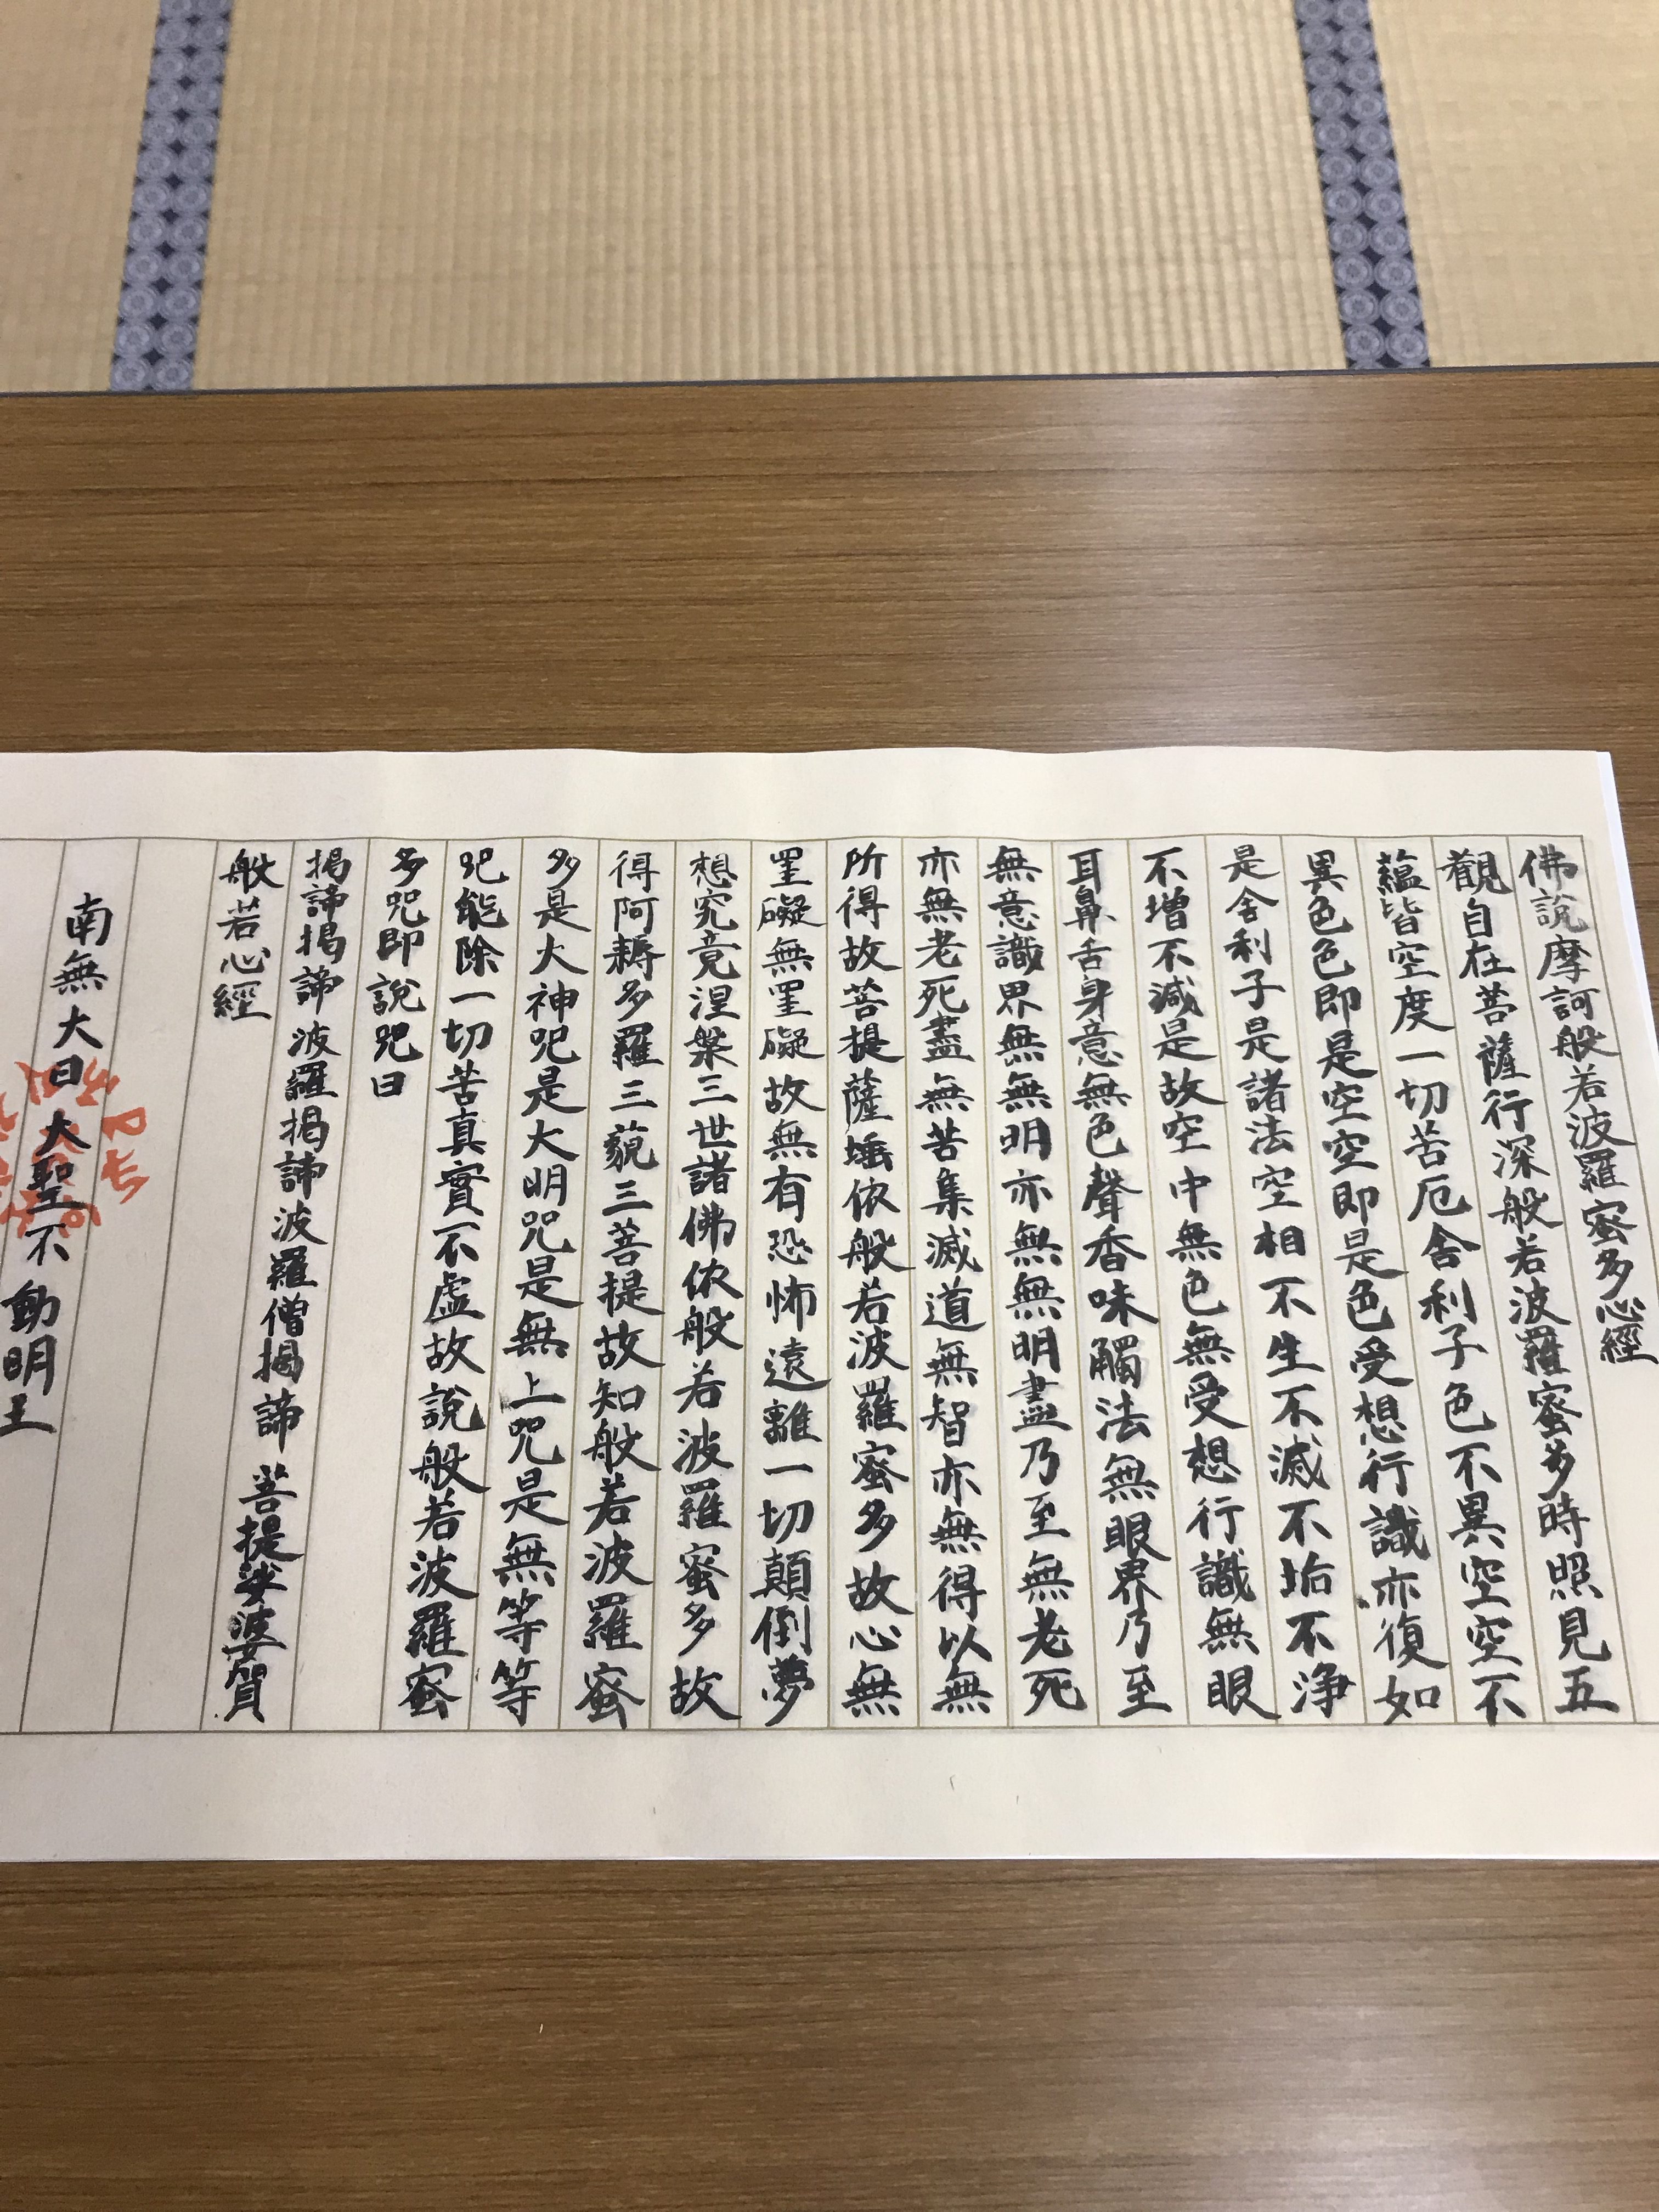 佛說摩訶般若波羅蜜多心經
觀自在菩薩行深般若波羅蜜多時照見五
蘊皆空度一切苦厄舍利子色不異空空不
異色色即是空空即是色受想行識亦復如
是舍利子是諸法空相不生不滅不垢不浄
不增不減是故空中無色無受想行識無眼
耳鼻舌身意無色聲香味觸法無眼界乃至
無意識界無無明亦無無明盡乃至無老死
亦無老死盡無苦集滅道無智亦無得以無
所得故菩提薩埵依般若波羅蜜多故心無
罣礙無罣礙故無有恐怖遠離一切顛倒夢
想究竟涅槃三世諸佛依般若波羅蜜多故
得阿耨多羅三藐三菩提故知般若波羅蜜
多是大神咒是大明咒是無上咒是無等等
咒能除一切苦真實不虛故說般若波羅蜜
多咒即說咒曰
揭諦揭諦波羅揭諦波羅僧揭諦菩提娑婆賀
般若心經
南無大日大聖不動明王